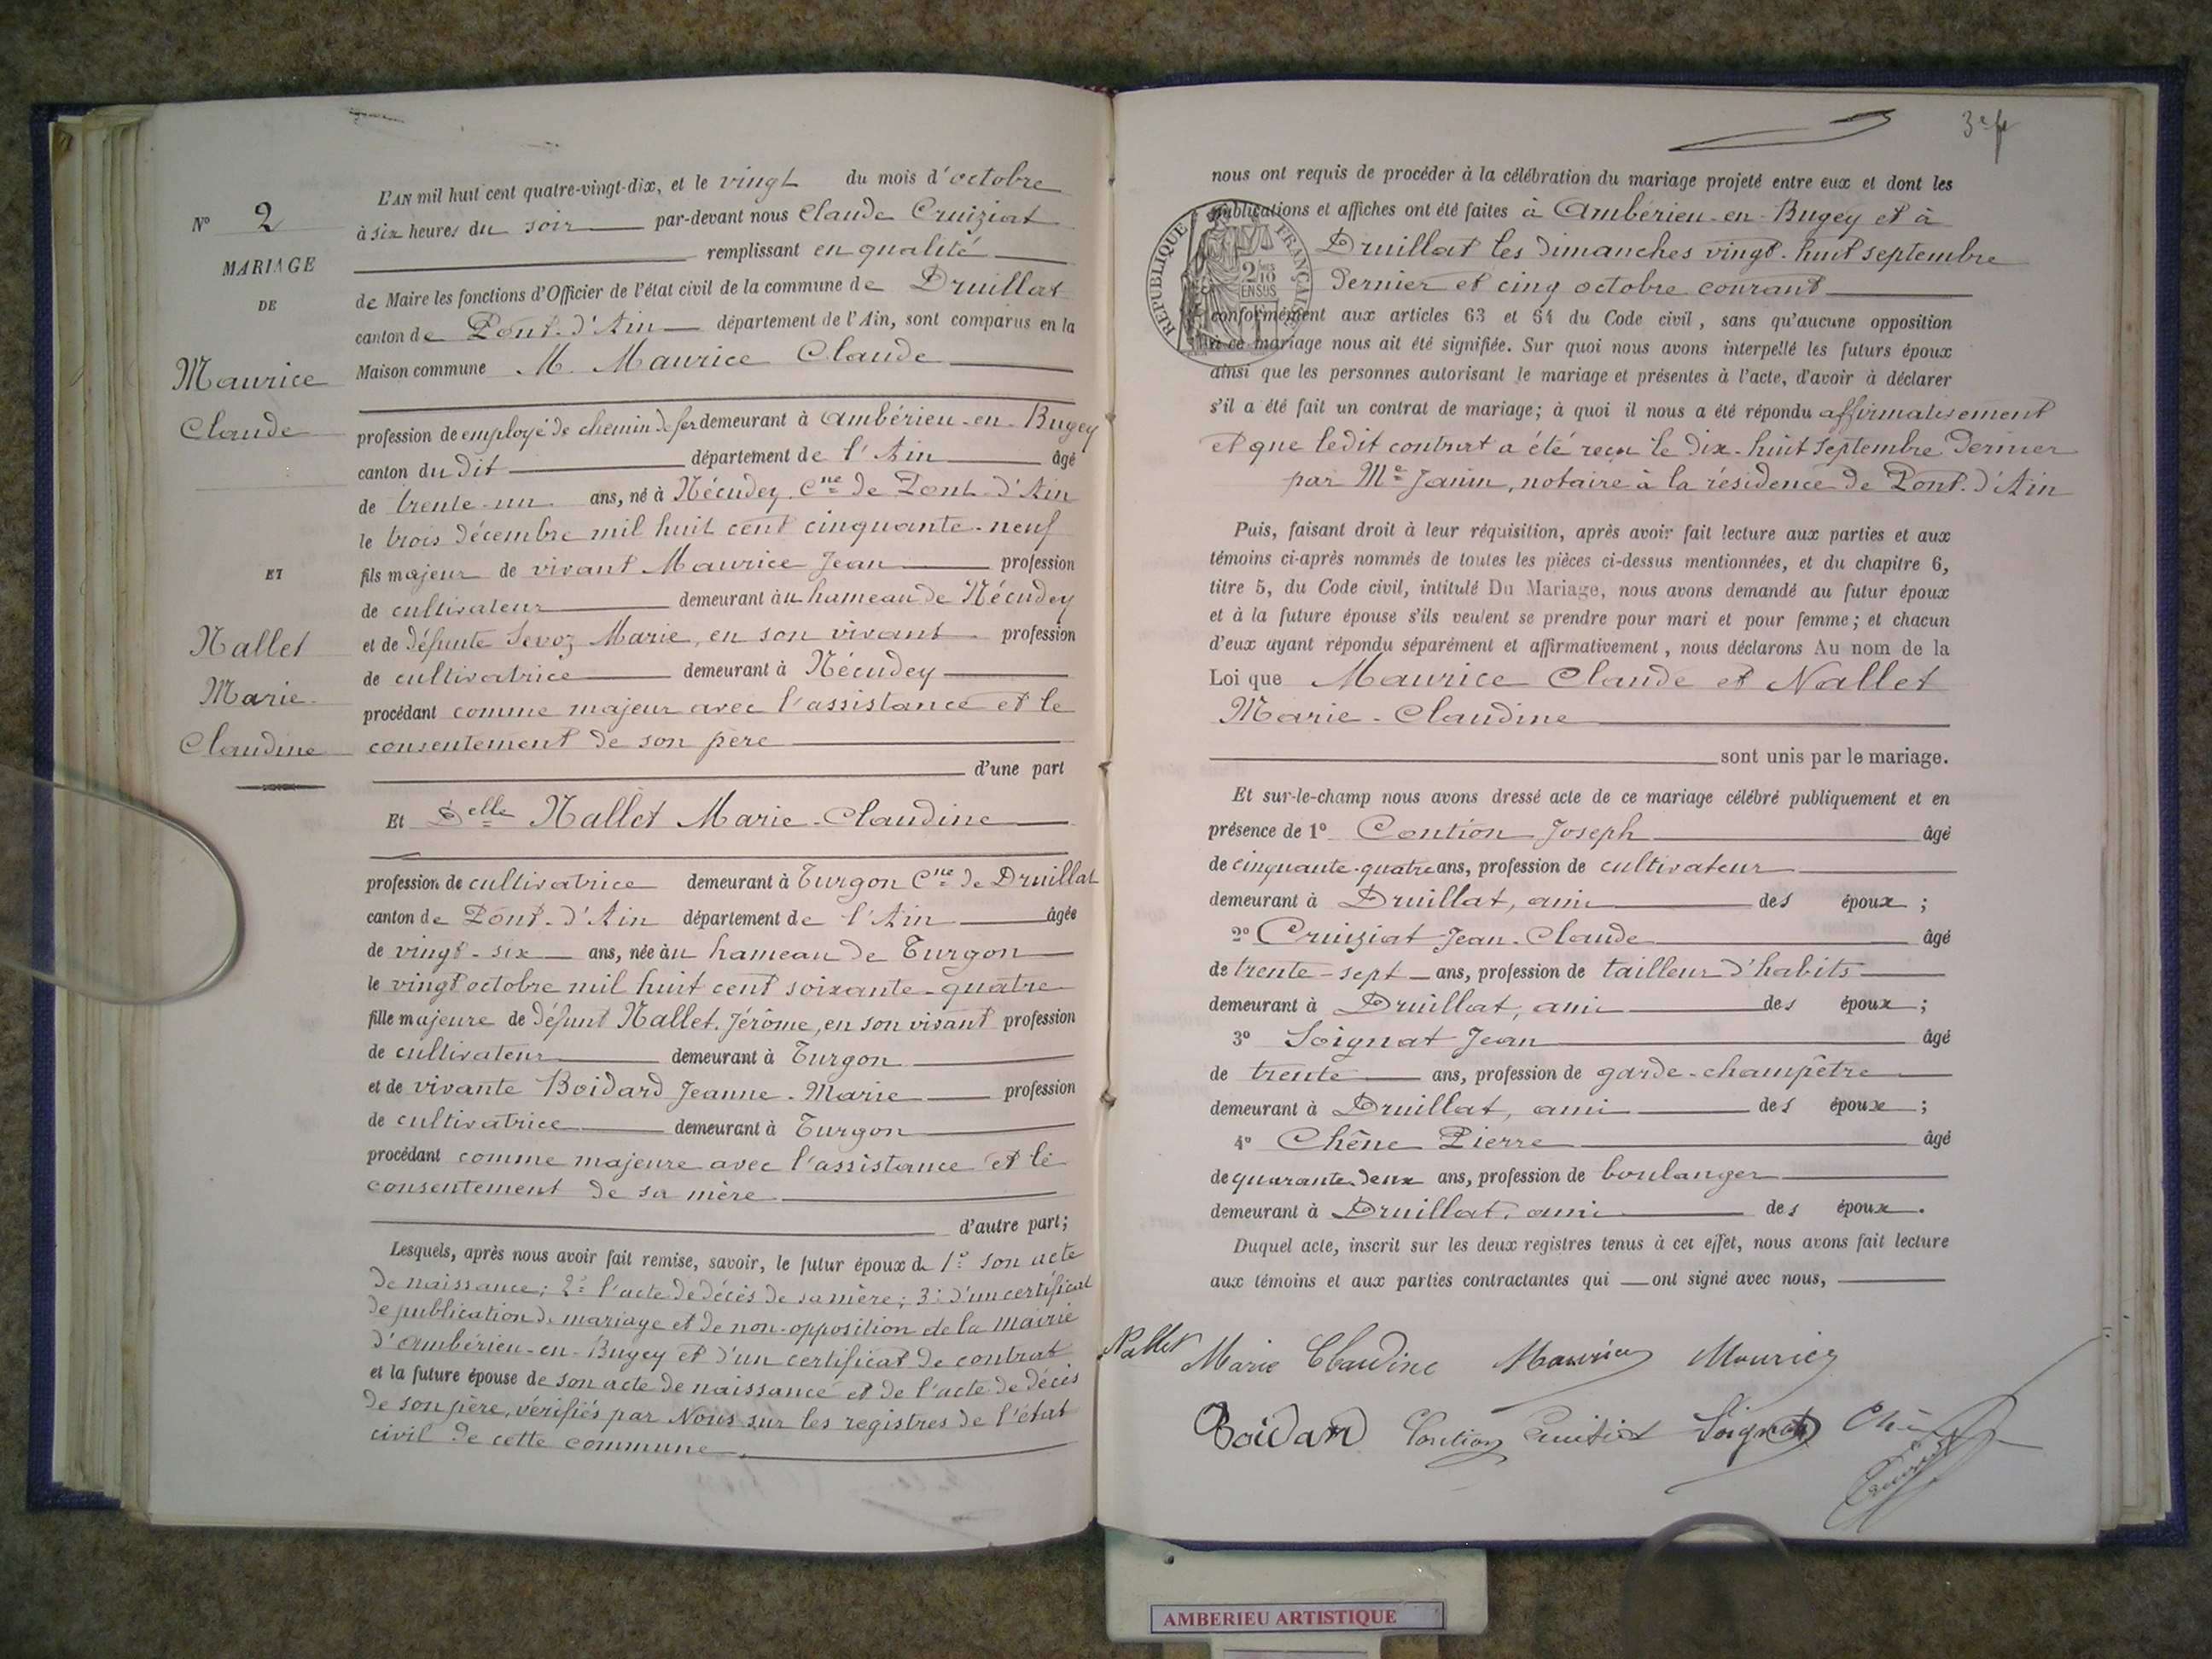 N° 2
MARIAGE
DE
Maurice
Claude
ET
Nallet
Marie
Claudine
L'AN mil huit cent quatre-vingt-dix, et le vingt du mois d'octobre
à six heures du soir par-devant nous Claude Cruiziat
remplissant en qualité
de Maire les fonctions d'Officier de l'état civil de la commune de Druillat
canton de Pont-d'Ain département de l'Ain, sont comparus en la
Maison commune M. Maurice Claude
profession de employé de chemin de fer demeurant à Ambérieu-en-Bugey
canton du dit département de l'Ain âgé
de trente-un ans, né à Nécudey Cne de Pont-d'Ain
le trois décembre mil huit cent cinquante-neuf
fils majeur de vivant Maurice Jean profession
de cultivateur demeurant au hameau de Nécudey
et de défunte Sevoz Marie, en son vivant profession
de cultivatrice demeurant à Nécudey
procédant comme majeur avec l'assistance et le
consentement de son père
d'une part
Et Delle Nallet Marie-Claudine
profession de cultivatrice demeurant à Turgon Cne de Druillat
canton de Pont-d'Ain département de l'Ain âgée
de vingt-six ans, née au hameau de Turgon
le vingt octobre mil huit cent soixante-quatre
fille majeure de défunt Nallet Jérôme, en son vivant profession
de cultivateur demeurant à Turgon
et de vivante Boidard Jeanne-Marie profession
de cultivatrice demeurant à Turgon
procédant comme majeure avec l'assistance et le
consentement de sa mère
d'autre part;
Lesquels, après nous avoir fait remise, savoir, le futur époux de 1° son acte
de naissance; 2° l'acte de décès de sa mère; 3° d'un certificat
de publication de mariage et de non-opposition de la mairie
d'Ambérieu-en-Bugey et d'un certificat de contrat
et la future épouse de son acte de naissance et de l'acte de décès
de son père, vérifiés par Nous sur les registres de l'état
civil de cette commune,
3e f
nous ont requis de procéder à la célébration du mariage projeté entre eux et dont les
publications et affiches ont été faites à Ambérieu-en-Bugey et à
Druillat les dimanches vingt-huit septembre
dernier et cinq octobre courant
RÉPUBLIQUE FRANÇAISE
2/10 EN SUS
conformément aux articles 63 et 64 du Code civil, sans qu'aucune opposition
à ce mariage nous ait été signifiée. Sur quoi nous avons interpellé les futurs époux
ainsi que les personnes autorisant le mariage et présentes à l'acte, d'avoir à déclarer
s'il a été fait un contrat de mariage; à quoi il nous a été répondu affirmativement
et que ledit contrat a été reçu le dix-huit septembre dernier
par Me Janin, notaire à la résidence de Pont-d'Ain
Puis, faisant droit à leur réquisition, après avoir fait lecture aux parties et aux
témoins ci-après nommés de toutes les pièces ci-dessus mentionnées, et du chapitre 6,
titre 5, du Code civil, intitulé Du Mariage, nous avons demandé au futur époux
et à la future épouse s'ils veulent se prendre pour mari et pour femme; et chacun
d'eux ayant répondu séparément et affirmativement, nous déclarons Au nom de la
Loi que Maurice Claude et Nallet
Marie-Claudine
sont unis par le mariage.
Et sur-le-champ nous avons dressé acte de ce mariage célébré publiquement et en
présence de 1° Contion Joseph âgé
de cinquante-quatre ans, profession de cultivateur
demeurant à Druillat, ami des époux;
2° Cruiziat Jean-Claude âgé
de trente-sept ans, profession de tailleur d'habits
demeurant à Druillat, ami des époux;
3° Soignat Jean âgé
de trente ans, profession de garde-champêtre
demeurant à Druillat, ami des époux;
4° Chêne Pierre âgé
de quarante-deux ans, profession de boulanger
demeurant à Druillat, ami des époux.
Duquel acte, inscrit sur les deux registres tenus à cet effet, nous avons fait lecture
aux témoins et aux parties contractantes qui ont signé avec nous,
Nallet Marie Claudine Maurice Maurice
Boidard Contion Cruiziat Soignat
AMBERIEU ARTISTIQUE